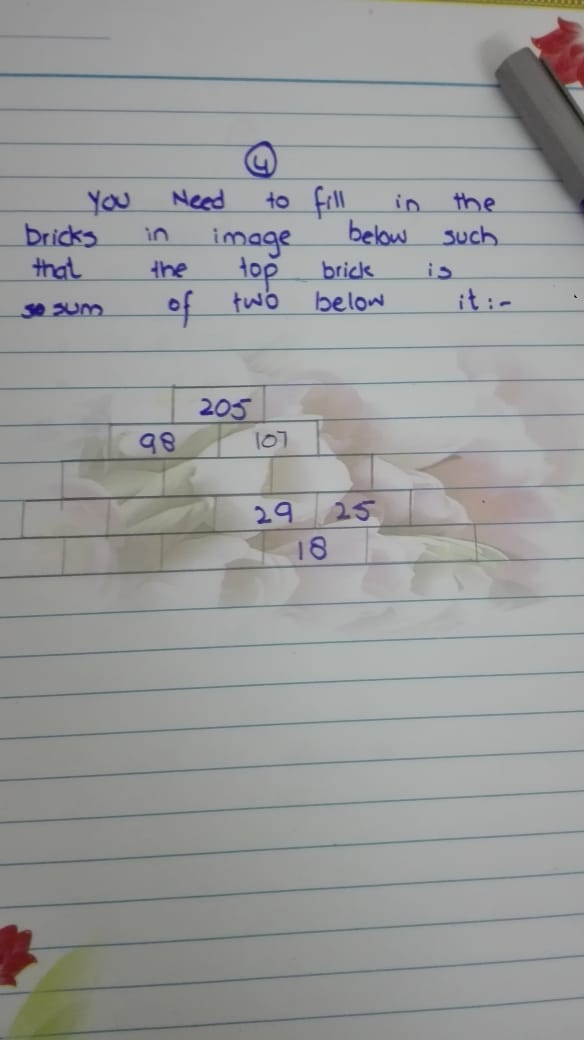 4
You Need to fill in the
bricks in image below such
that the top brick is
sum of two below it :-
205
98 107
29 25
18